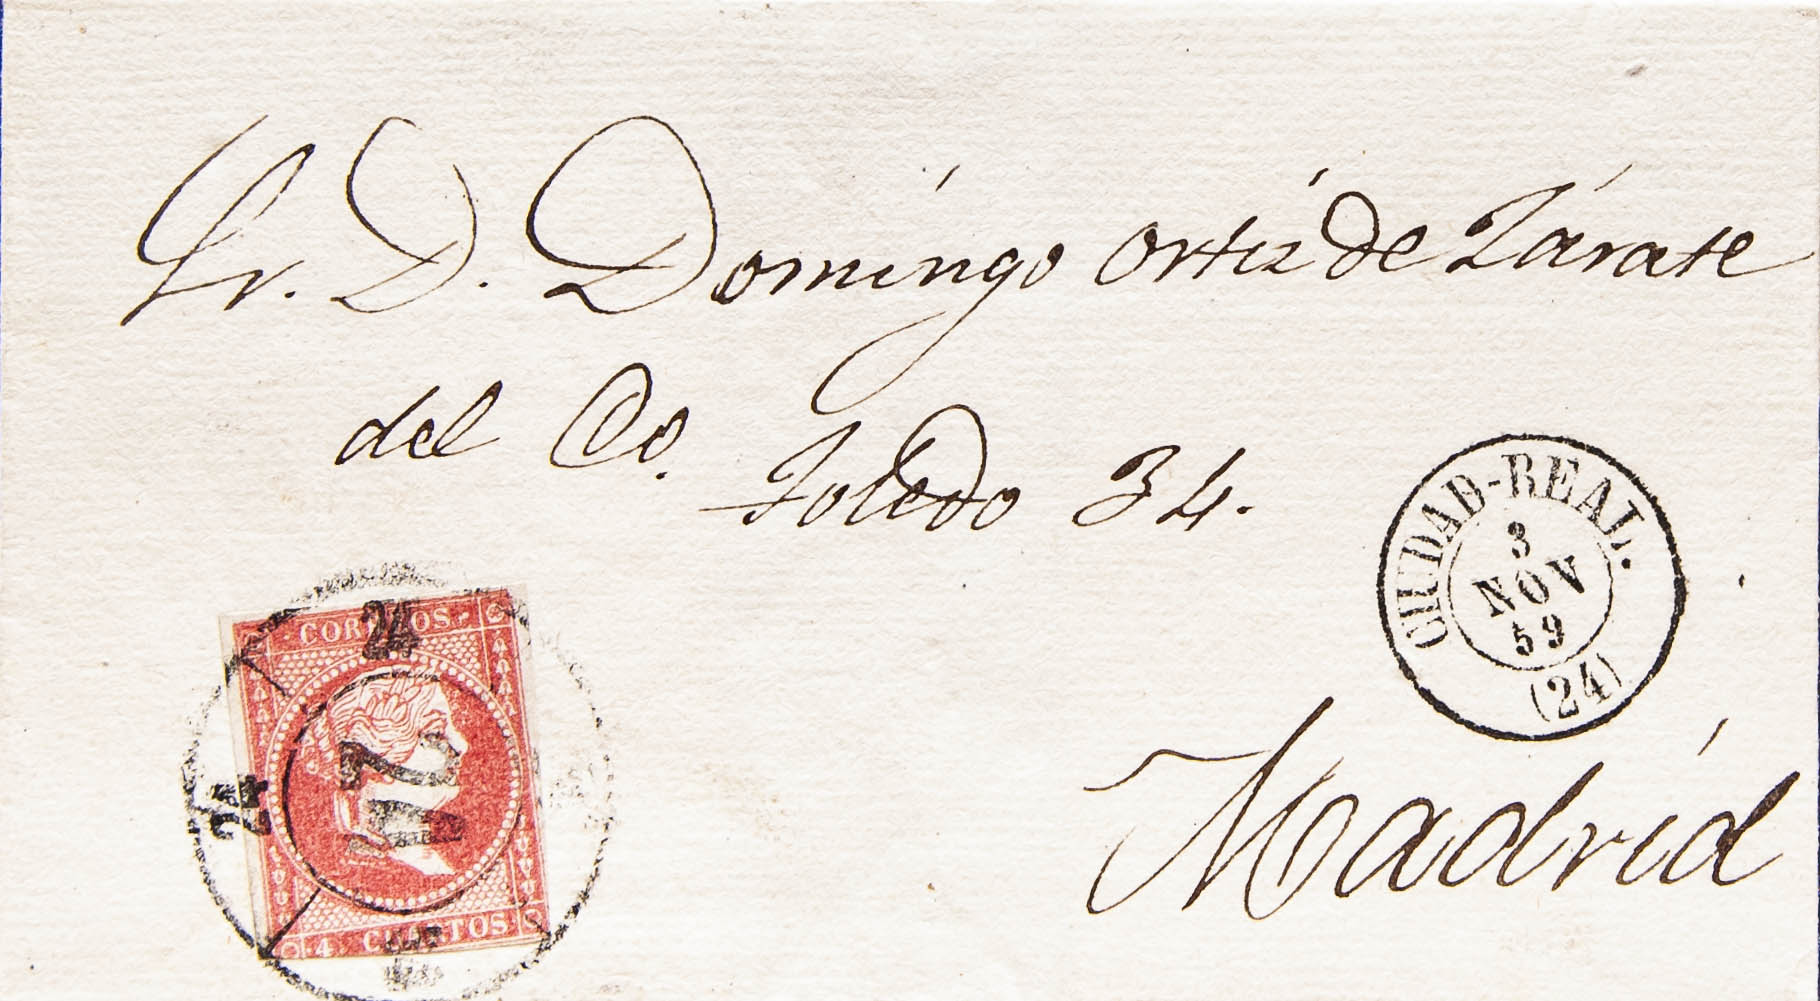 Sr. D. Domingo Ortiz de Zárate
del Co.
Toledo 34.
CIUDAD-REAL.
3
NOV
59
(24)
Madrid
CORREOS
24
24
4 CUARTOS